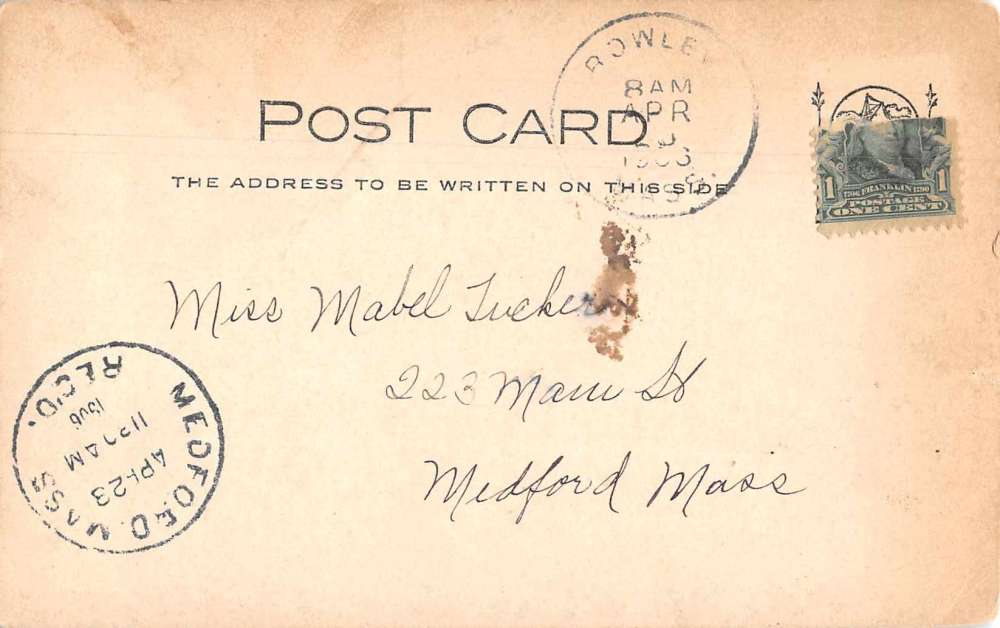 POST CARD
THE ADDRESS TO BE WRITTEN ON THIS SIDE
ROWLEY
8 AM
APR
MASS
1 1706 FRANKLIN 1790 1
POSTAGE
ONE CENT
Miss Mabel Tucker
223 Main St
Medford Mass
MEDFORD, MASS
REC'D.
1906
AM
APR 23